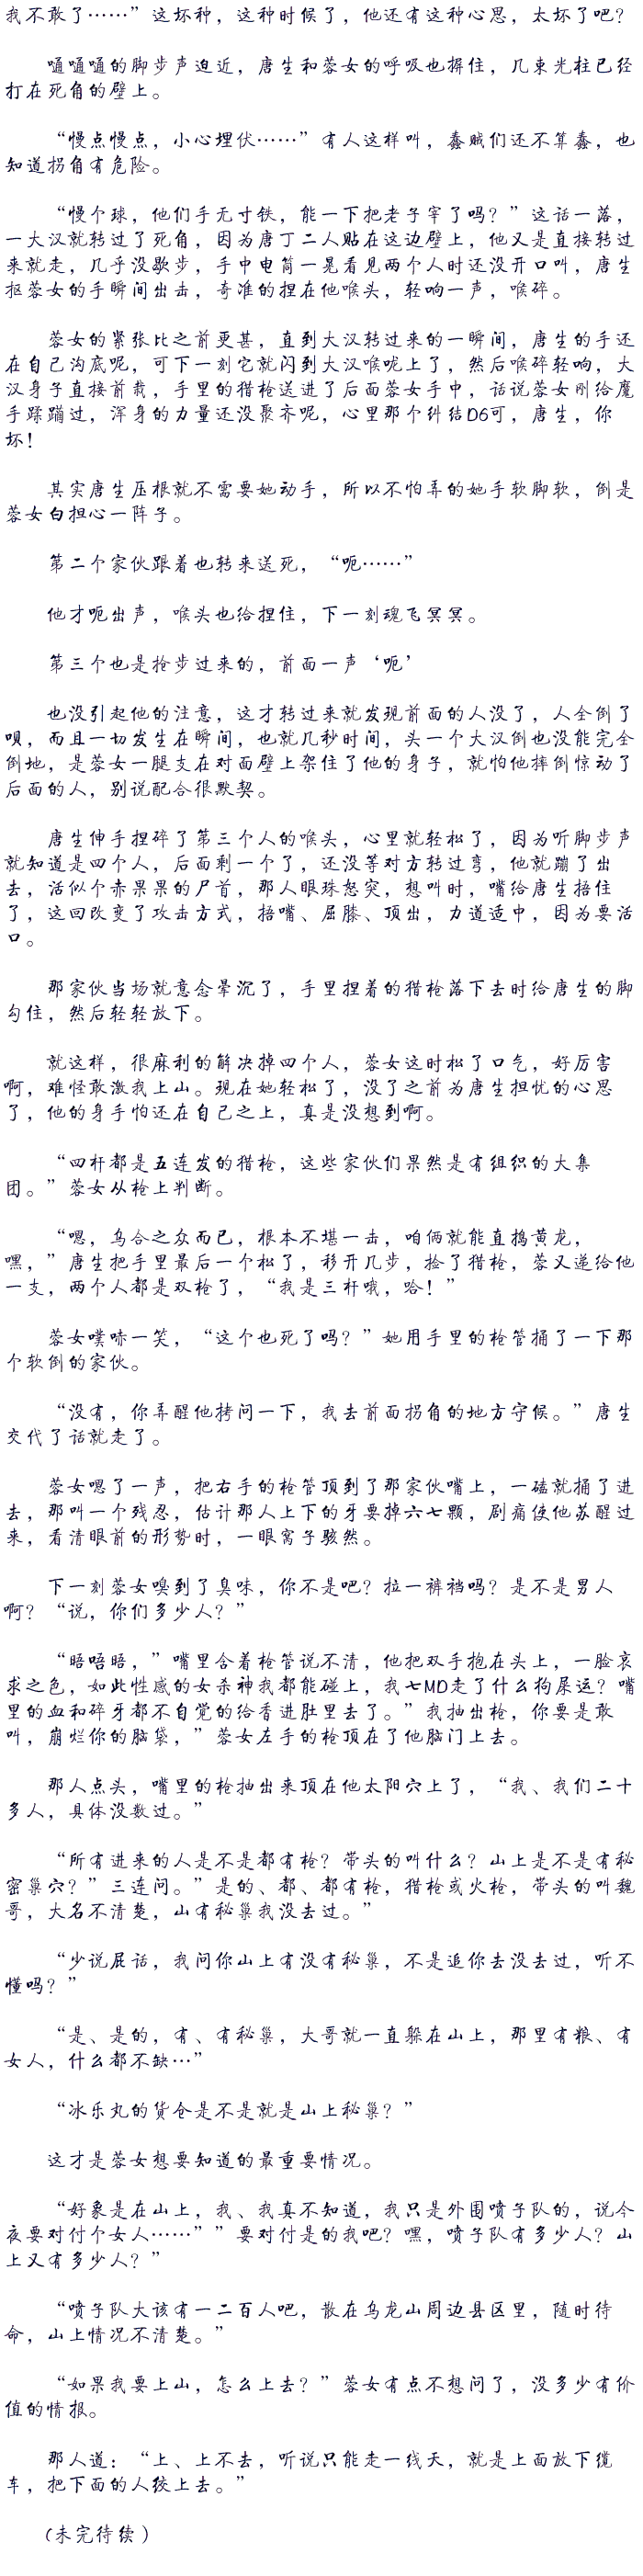 我不敢了……”这坏种，这种时候了，他还有这种心思，太坏了吧？
嗵嗵嗵的脚步声迫近，唐生和蓉女的呼吸也摒住，几束光柱已经
打在死角的壁上。
“慢点慢点，小心埋伏……”有人这样叫，蠢贼们还不算蠢，也
知道拐角有危险。
“慢个球，他们手无寸铁，能一下把老子宰了吗？”这话一落，
一大汉就转过了死角，因为唐丁二人贴在这边壁上，他又是直接转过
来就走，几乎没歇步，手中电筒一晃看见两个人时还没开口叫，唐生
抠蓉女的手瞬间出击，奇准的捏在他喉头，轻响一声，喉碎。
蓉女的紧张比之前更甚，直到大汉转过来的一瞬间，唐生的手还
在自己沟底呢，可下一刻它就闪到大汉喉咙上了，然后喉碎轻响，大
汉身子直接前栽，手里的猎枪送进了后面蓉女手中，话说蓉女刚给魔
手蹂蹦过，浑身的力量还没聚齐呢，心里那个纠结D6可，唐生，你
坏！
其实唐生压根就不需要她动手，所以不怕弄的她手软脚软，倒是
蓉女白担心一阵子。
第二个家伙跟着也转来送死，“呃……”
他才呃出声，喉头也给捏住，下一刻魂飞冥冥。
第三个也是抢步过来的，前面一声‘呃’
也没引起他的注意，这才转过来就发现前面的人没了，人全倒了
呗，而且一切发生在瞬间，也就几秒时间，头一个大汉倒也没能完全
倒地，是蓉女一腿支在对面壁上架住了他的身子，就怕他摔倒惊动了
后面的人，别说配合很默契。
唐生伸手捏碎了第三个人的喉头，心里就轻松了，因为听脚步声
就知道是四个人，后面剩一个了，还没等对方转过弯，他就蹦了出
去，活似个赤果果的尸首，那人眼珠怒突，想叫时，嘴给唐生捂住
了，这回改变了攻击方式，捂嘴、屈膝、顶出，力道适中，因为要活
口。
那家伙当场就意念晕沉了，手里捏着的猎枪落下去时给唐生的脚
勾住，然后轻轻放下。
就这样，很麻利的解决掉四个人，蓉女这时松了口气，好厉害
啊，难怪敢激我上山。现在她轻松了，没了之前为唐生担忧的心思
了，他的身手怕还在自己之上，真是没想到啊。
“四杆都是五连发的猎枪，这些家伙们果然是有组织的大集
团。”蓉女从枪上判断。
“嗯，乌合之众而已，根本不堪一击，咱俩就能直捣黄龙，
嘿，”唐生把手里最后一个松了，移开几步，捡了猎枪，蓉又递给他
一支，两个人都是双枪了，“我是三杆哦，哈！”
蓉女噗哧一笑，“这个也死了吗？”她用手里的枪管捅了一下那
个软倒的家伙。
“没有，你弄醒他拷问一下，我去前面拐角的地方守候。”唐生
交代了话就走了。
蓉女嗯了一声，把右手的枪管顶到了那家伙嘴上，一磕就捅了进
去，那叫一个残忍，估计那人上下的牙要掉六七颗，剧痛使他苏醒过
来，看清眼前的形势时，一眼窝子骇然。
下一刻蓉女嗅到了臭味，你不是吧？拉一裤裆吗？是不是男人
啊？“说，你们多少人？”
“晤唔晤，”嘴里含着枪管说不清，他把双手抱在头上，一脸哀
求之色，如此性感的女杀神我都能碰上，我七MD走了什么狗屎运？嘴
里的血和碎牙都不自觉的给吞进肚里去了。”我抽出枪，你要是敢
叫，崩烂你的脑袋，”蓉女左手的枪顶在了他脑门上去。
那人点头，嘴里的枪抽出来顶在他太阳穴上了，“我、我们二十
多人，具体没数过。”
“所有进来的人是不是都有枪？带头的叫什么？山上是不是有秘
密巢穴？”三连问。”是的、都、都有枪，猎枪或火枪，带头的叫魏
哥，大名不清楚，山有秘巢我没去过。”
“少说屁话，我问你山上有没有秘巢，不是追你去没去过，听不
懂吗？”
“是、是的，有、有秘巢，大哥就一直躲在山上，那里有粮、有
女人，什么都不缺…”
“冰乐丸的货仓是不是就是山上秘巢？”
这才是蓉女想要知道的最重要情况。
“好象是在山上，我、我真不知道，我只是外围喷子队的，说今
夜要对付个女人……””要对付是的我吧？嘿，喷子队有多少人？山
上又有多少人？”
“喷子队大该有一二百人吧，散在乌龙山周边县区里，随时待
命，山上情况不清楚。”
“如果我要上山，怎么上去？”蓉女有点不想问了，没多少有价
值的情报。
那人道：“上、上不去，听说只能走一线天，就是上面放下缆
车，把下面的人绞上去。”
(未完待续）